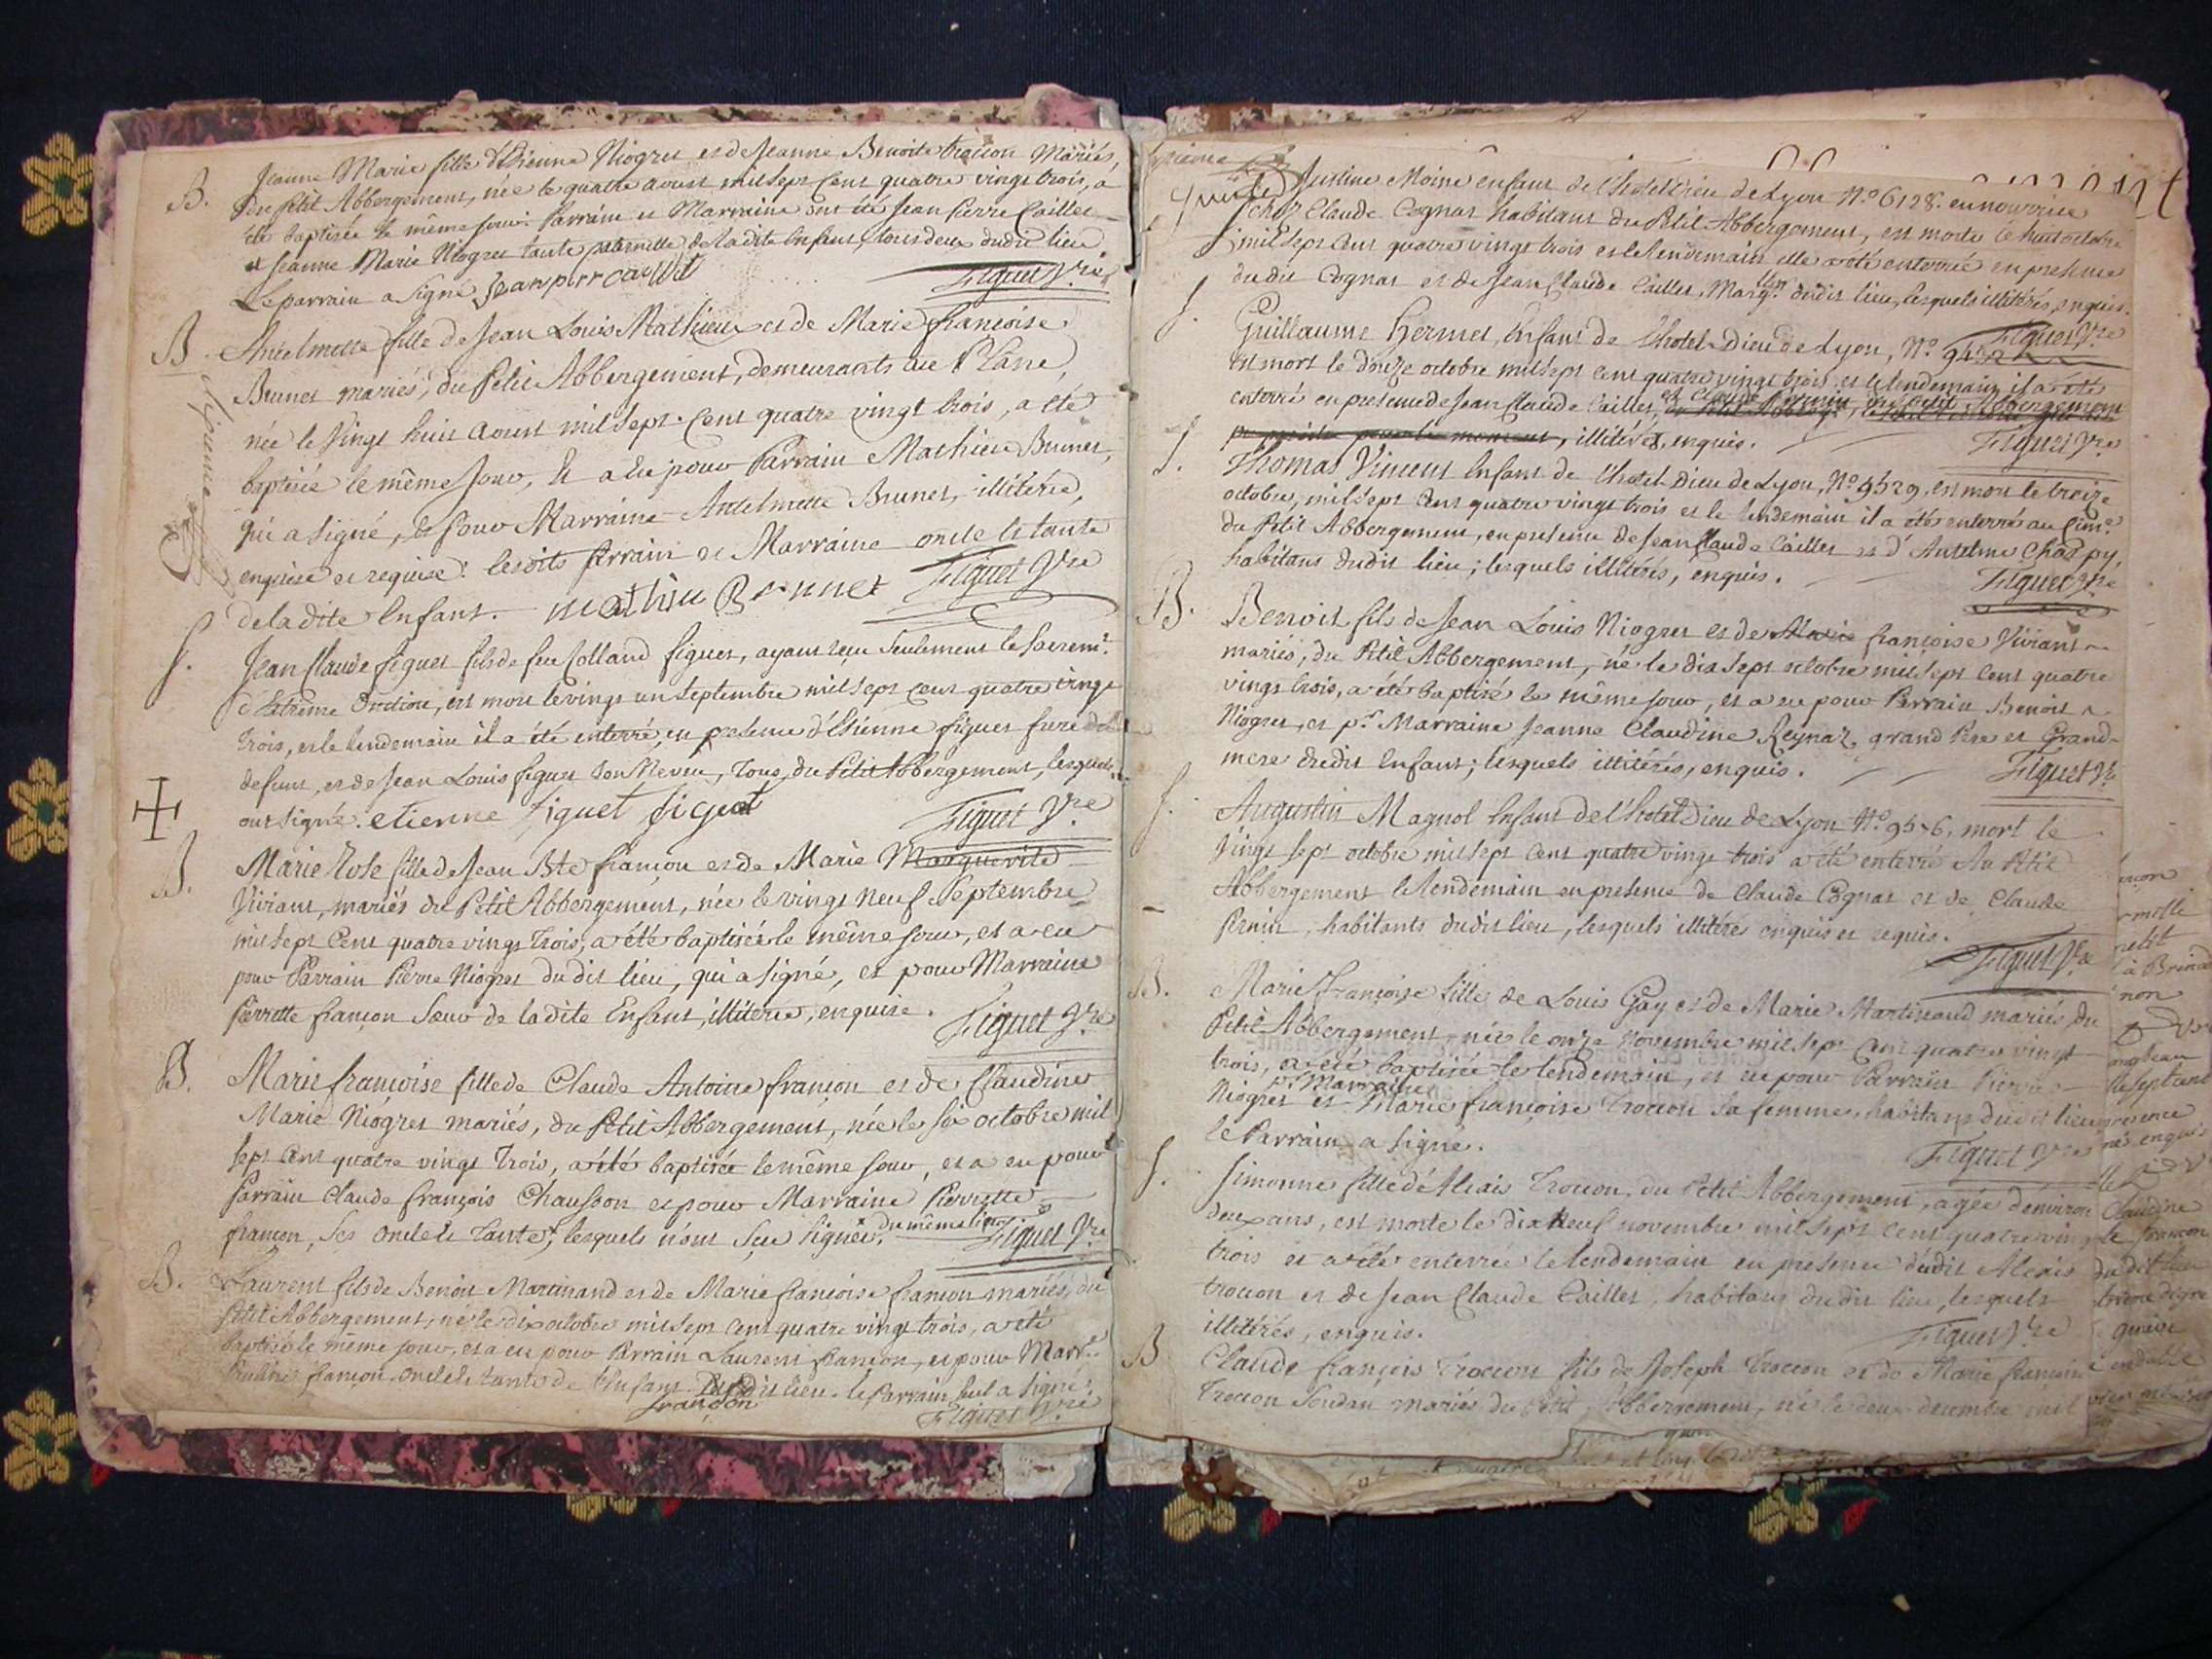 B. Jeanne Marie fille d'Etienne Niogret et de Jeanne Benoite trocon Mariés,
du petit Abbergement, née le quatre aoust mil sept Cent quatre vingt trois, a
été baptisée le même jour. Parrain et Marraine ont été Jean Pierre Caillet
et Jeanne Marie Niogret tante paternelle de la dite Enfant, tous deux dudit lieu
Le parrain a signé
Figuet Vre
B. Antelmette fille de Jean Louis Mathieu et de Marie françoise
Brunet mariés, du Petit Abbergement, demeurants au Plane,
née le vingt huit aoust mil sept Cent quatre vingt trois, a été
baptisée le même jour, et a eu pour Parrain Mathieu Brunet,
qui a signé, et pour Marraine Antelmette Brunet, illitérée,
enquise et requise. les dits Parrain et Marraine oncle et tante
de la dite Enfant. mathieu Brunet Figuet Vre
S. Jean Claude figuet fils de feu Colland figuet, ayant reçu seulement le sacremt
d'Extrême Onction, est mort le vingt un septembre mil sept cent quatre vingt
trois, et le lendemain il a été enterré, en presence d'Etienne figuet frere du
defunt, et de Jean Louis figuet son Neveu, tous du Petit Abbergement, lesquels
ont signé. etienne figuet figuet Figuet Vre
B. Marie Rose fille de Jean Bte françon et de Marie Marguerite
Viviant, mariés du Petit Abbergement, née le vingt neuf Septembre
mil sept Cent quatre vingt trois, a été baptisée le même jour, et a eu
pour Parrain Pierre Niogret dudit lieu, qui a signé, et pour Marraine
Pierrette françon Sœur de la dite Enfant, illitérée, enquise.
Figuet Vre
B. Marie françoise fille de Claude Antoine françon et de Claudine
Marie Niogret mariés, du Petit Abbergement, née le six octobre mil
sept Cent quatre vingt trois, a été baptisée le même jour, et a eu pour
Parrain Claude françois Chausson et pour Marraine Pierrette
françon, ses oncle et tante, lesquels n'ont sçu signer. du même lieu Figuet Vre
B. Laurent fils de Benoit Martinand et de Marie françoise françon mariés, du
petit Abbergement, né le dix octobre mil sept Cent quatre vingt trois, a été
baptisé le même jour, et a eu pour Parrain Laurent françon, et pour Marrne
françon, oncle et tante de l'Enfant dudit lieu. le Parrain seul a signé.
françon Figuet Vre
Justine Moine enfant de l'hotel Dieu de Lyon No 6128. en nourrice
chez Claude Cognat habitant du Petit Abbergement, est morte le huit octobre
mil sept Cent quatre vingt trois et le lendemain elle a été enterrée en presence
dudit Cognat et de Jean Claude Caillet, dudit lieu, lesquels illitérés, enquis.
S. Guillaume Hermet, Enfant de l'hotel-Dieu de Lyon, No Figuet Vre
est mort le douze octobre mil sept cent quatre vingt trois, et le lendemain il a été
enterré en presence de Jean Claude Caillet, et Claude Pernin du petit Abbergement
illitérés, enquis. Figuet Vre
S. Thomas Vincent Enfant de l'hotel-Dieu de Lyon, No 9529, est mort le treize
octobre, mil sept Cent quatre vingt trois et le lendemain il a été enterré au Cime
du Petit Abbergement, en presence de Jean Claude Caillet et d'Antelme Charpy,
habitans dudit lieu; lesquels illitérés, enquis. Figuet Vre
B. Benoit fils de Jean Louis Niogret et de Marie françoise Viviant
mariés, du Petit Abbergement, né le dix sept octobre mil sept Cent quatre
vingt trois, a été baptisé le même jour, et a eu pour Parrain Benoit
Niogret, et pr Marraine Jeanne Claudine Reynaz grand Père et Grand
mere dudit Enfant; lesquels illitérés, enquis. Figuet Vre
S. Augustin Magnol Enfant de l'hotel Dieu de Lyon mort le
vingt sept octobre mil sept Cent quatre vingt trois a été enterré au Petit
Abbergement le lendemain en presence de Claude Cognat et de Claude
Pernin, habitants dudit lieu, lesquels illitérés enquis et requis.
Figuet Vre
B. Marie françoise fille de Louis Gay et de Marie Martinand mariés, du
Petit Abbergement, née le onze Novembre mil sept Cent quatre vingt
trois, a été baptisée le lendemain, et eu pour Parrain Pierre
Niogret et pr Marraine Marie françoise Trocon sa femme, habitans dudit lieu
le Parrain a signé.
Figuet Vre
S. Simonne fille d'Alexis Trocon, du Petit Abbergement, agée d'environ
deux ans, est morte le dix neuf novembre mil sept cent quatre vingt
trois et a été enterrée le lendemain en presence dudit Alexis
trocon et de Jean Claude Caillet, habitans dudit lieu, lesquels
illitérés, enquis. Figuet Vre
B Claude françois Trocon fils de Joseph Trocon et de Marie françoise
Trocon Soudan mariés du Petit Abbergement, né le deux decembre mil